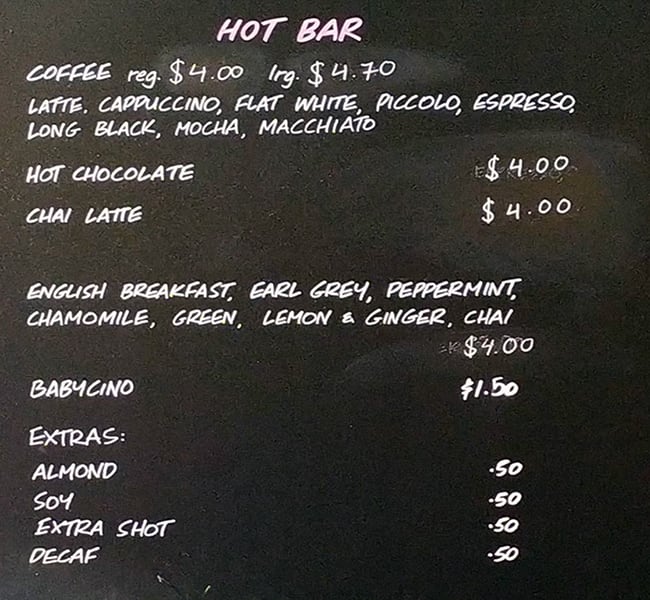 HOT BAR
COFFEE reg. $4.00 lrg. $4.70
LATTE. CAPPUCCINO, FLAT WHITE, PICCOLO, ESPRESSO,
LONG BLACK, MOCHA, MACCHIATO
HOT CHOCOLATE $4.00
CHAI LATTE $4.00
ENGLISH BREAKFAST, EARL GREY, PEPPERMINT,
CHAMOMILE, GREEN, LEMON & GINGER, CHAI
$4.00
BABYCINO $1.50
EXTRAS:
ALMOND .50
SOY .50
EXTRA SHOT .50
DECAF .50